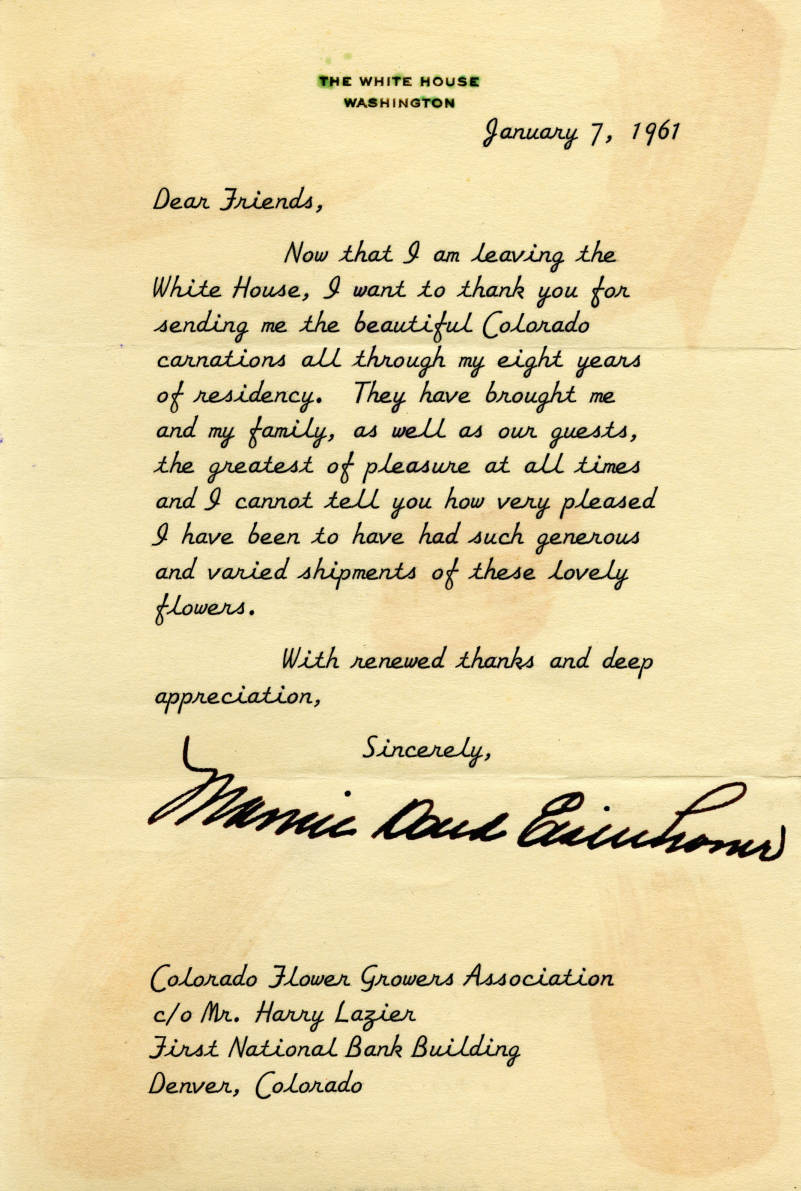 THE WHITE HOUSE
WASHINGTON
January 7, 1961
Dear Friends,
Now that I am leaving the
White House, I want to thank you for
sending me the beautiful Colorado
carnations all through my eight years
of residency. They have brought me
and my family, as well as our guests,
the greatest of pleasure at all times
and I cannot tell you how very pleased
I have been to have had such generous
and varied shipments of these lovely
flowers.
With renewed thanks and deep
appreciation,
Sincerely,
Mamie Doud Eisenhower
Colorado Flower Growers Association
c/o Mr. Harry Lazier
First National Bank Building
Denver, Colorado